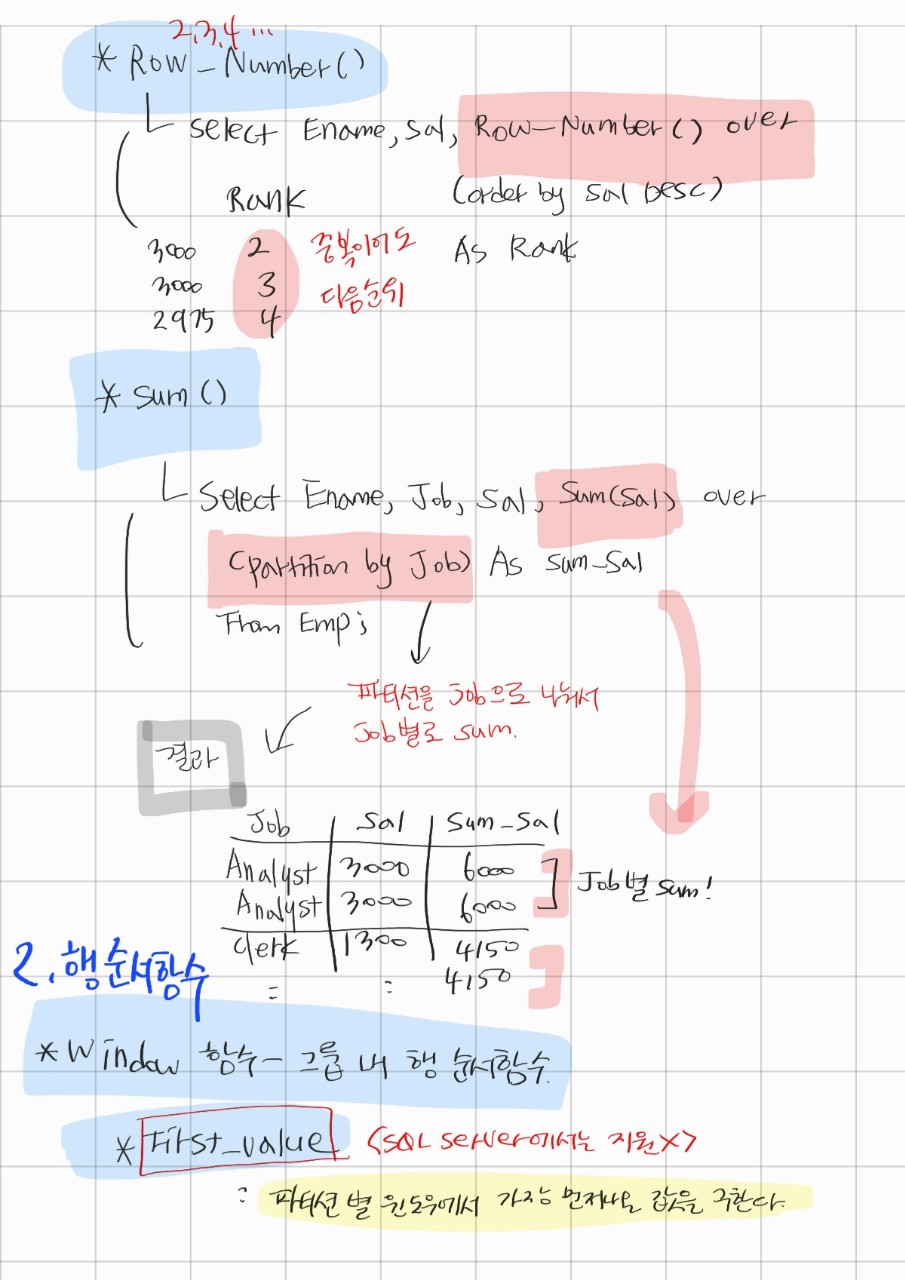 2,3,4 ...
* Row-Number()
select Ename, Sal, Row-Number() over
Rank (order by Sal Desc)
3000 2 중복이어도 As Rank
3000 3 다음순위
2975 4
* Sum()
Select Ename, Job, Sal, Sum(Sal) over
(partition by Job) As sum-Sal
From Emp;
파티션을 Job으로 나눠서
Job별로 sum.
결과
Job Sal Sum-Sal
Analyst 3000 6000
Job별 sum!
Analyst 3000 6000
Clerk 1300 4150
2. 행순서함수
= : 4150
* Window 함수 - 그룹 내 행 순서함수.
* First_value (SQL Server에서는 지원X)
: 파티션 별 윈도우에서 가장 먼저나온 값을 구한다.